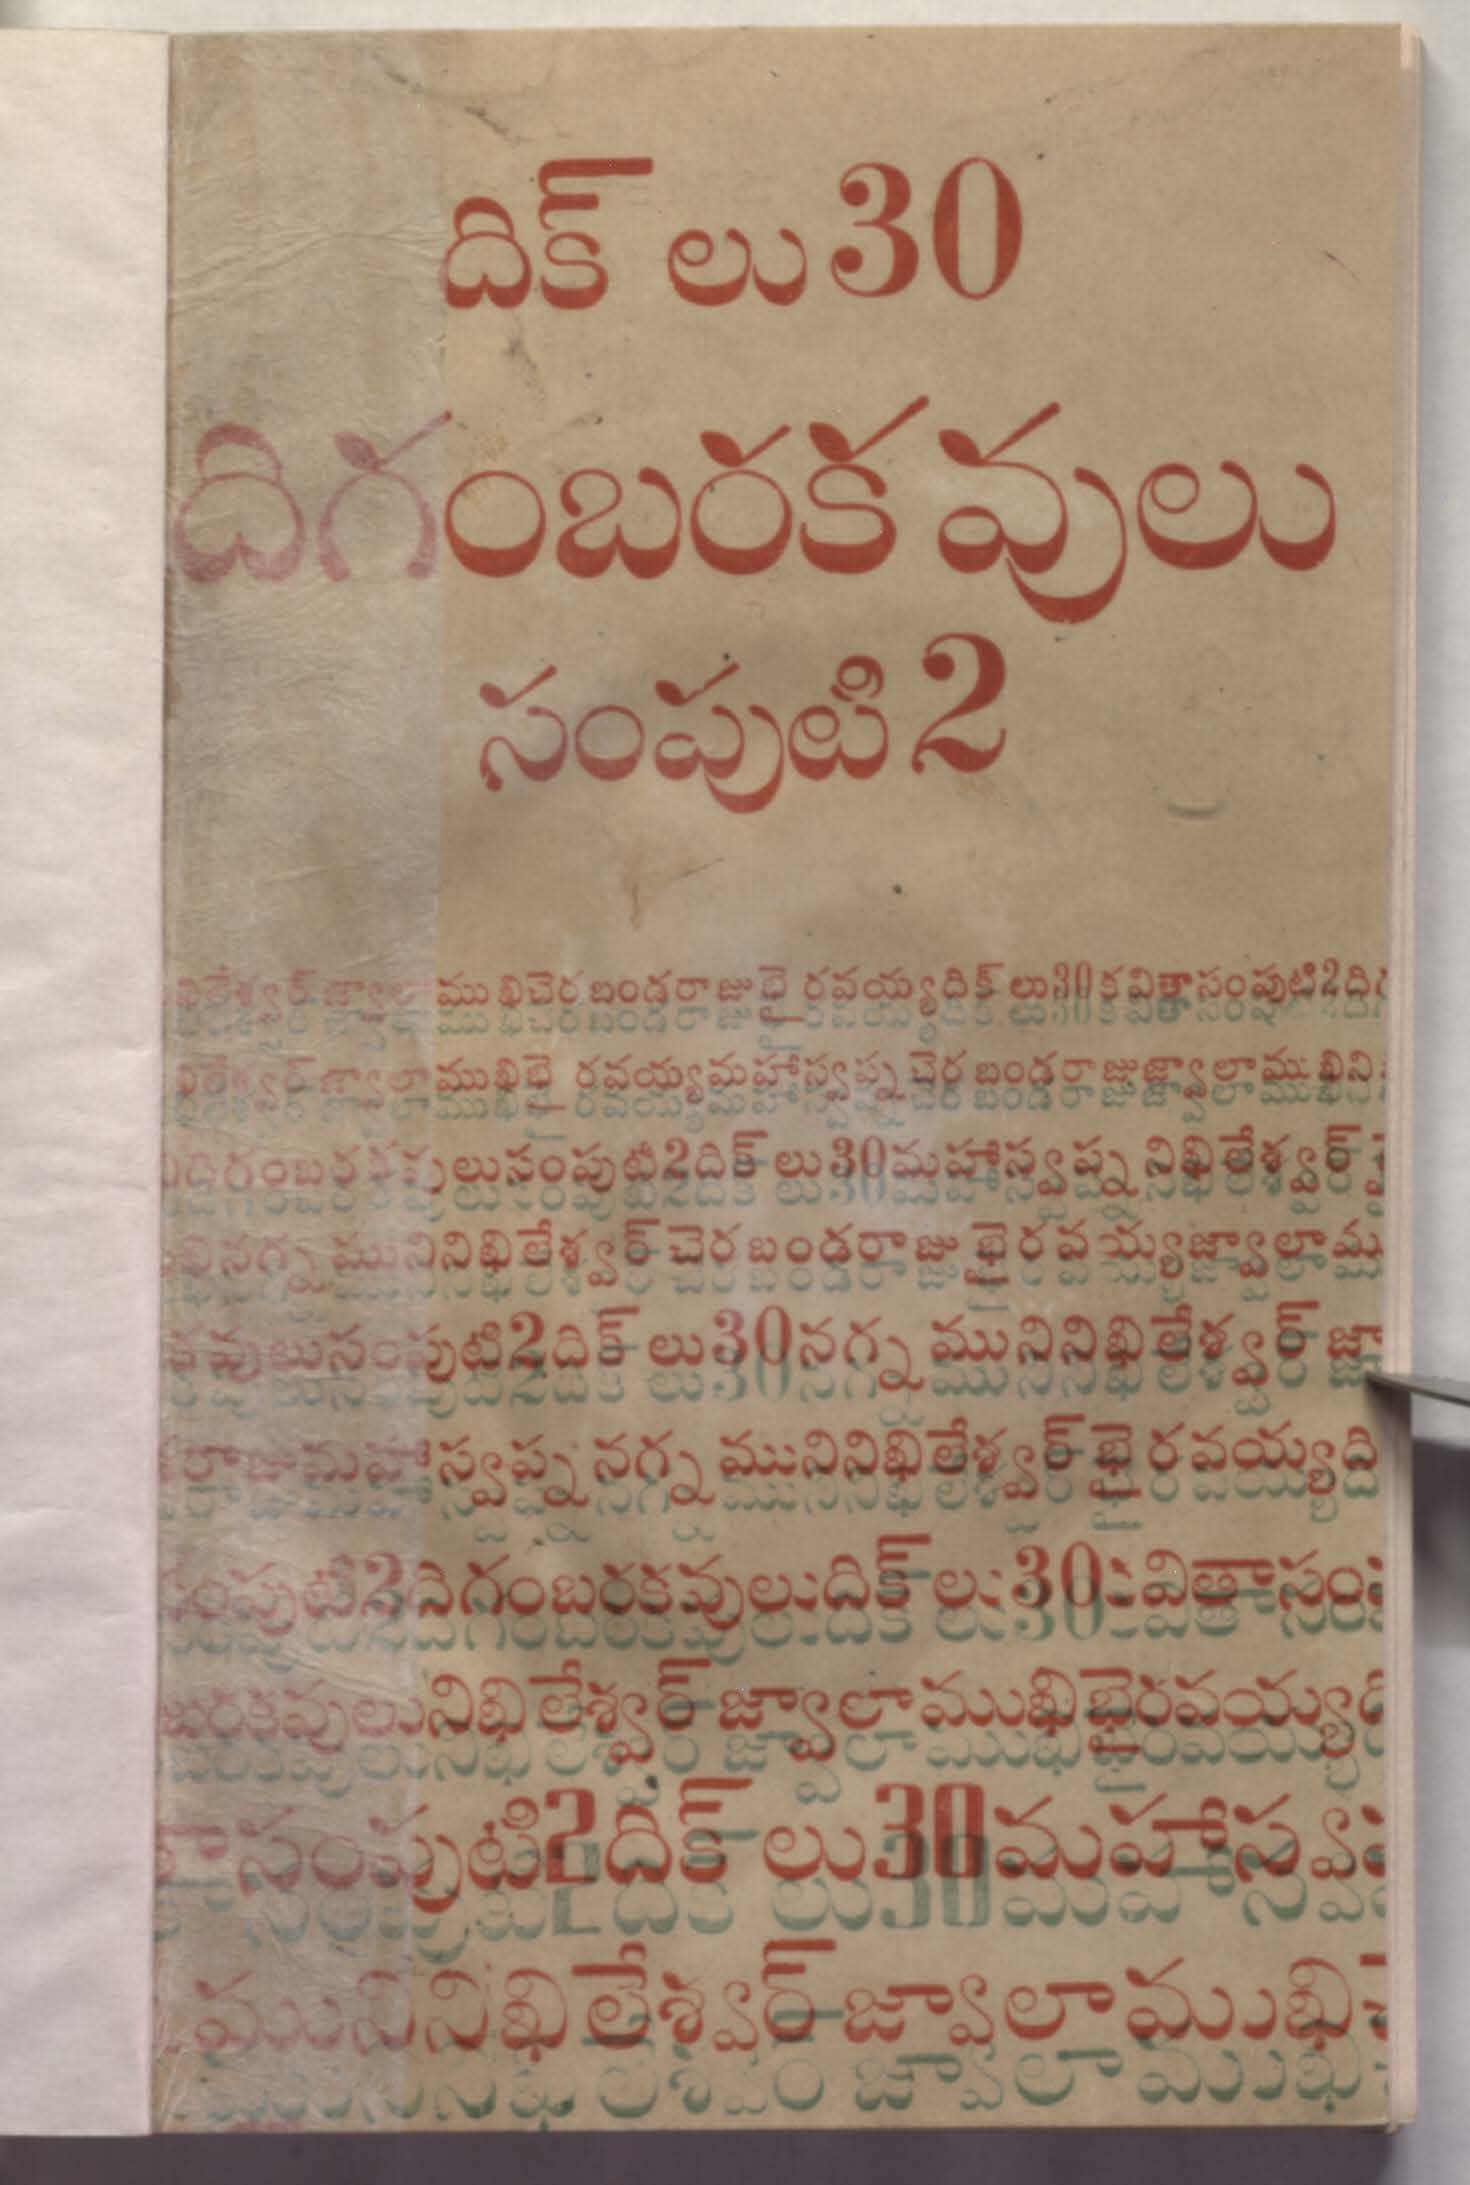 దిక్ లు 30
దిగంబరకవులు
సంపుటి 2
ఖిలేశ్వర్ జ్వాలాముఖిచెరబండరాజుభైరవయ్యదిక్ లు30కవితాసంపుటి2దిగ
ఖిలేశ్వర్ జ్వాలాముఖిభైరవయ్యమహాస్వప్నచెరబండరాజుజ్వాలాముఖిని
దిగంబరకవులుసంపుటి2దిక్ లు30మహాస్వప్ననిఖిలేశ్వర్
నగ్నమునినిఖిలేశ్వర్ చెరబండరాజుభైరవయ్యజ్వాలాము
కవులుసంపుటి2దిక్ లు30నగ్నమునినిఖిలేశ్వర్ జ్వా
రాజుమహాస్వప్ననగ్నమునినిఖిలేశ్వర్ భైరవయ్యది
సంపుటి2దిగంబరకవులుదిక్ లు30కవితాసంపు
బరకవులునిఖిలేశ్వర్ జ్వాలాముఖిభైరవయ్యది
తాసంపుటి2దిక్ లు30మహాస్వప
మునినిఖిలేశ్వర్ జ్వాలాముఖి